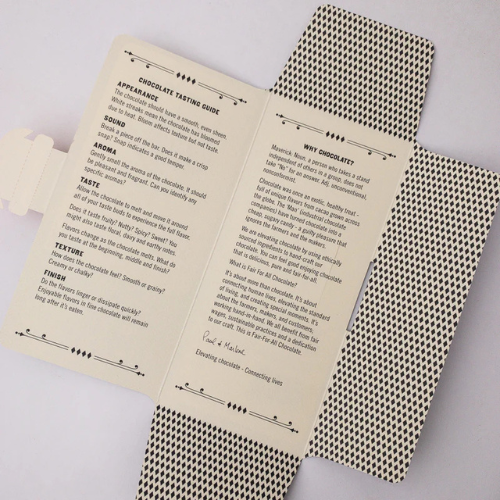 CHOCOLATE TASTING GUIDE
APPEARANCE
The chocolate should have a smooth, even sheen.
White streaks mean the chocolate has bloomed
due to heat. Bloom affects texture but not taste.
SOUND
Break a piece off the bar. Does it make a crisp
snap? Snap indicates a good temper.
AROMA
Gently smell the aroma of the chocolate. It should
be pleasant and fragrant. Can you identify any
specific aromas?
TASTE
Allow the chocolate to melt and move it around
all of your taste buds to experience the full flavor.
Does it taste fruity? Nutty? Spicy? Sweet? You
might also taste floral, dairy and earthy notes.
Flavors change as the chocolate melts. What do
you taste at the beginning, middle and finish?
TEXTURE
How does the chocolate feel? Smooth or grainy?
Creamy or chalky?
FINISH
Do the flavors linger or dissipate quickly?
Enjoyable flavors in fine chocolate will remain
long after it's eaten.
WHY CHOCOLATE?
Maverick: Noun, a person who takes a stand
independent of others in a group; does not
take "No" for an answer. Adj. unconventional,
nonconformist
Chocolate was once an exotic, healthy treat -
full of unique flavors from cacao grown across
the globe. The "Max" industrial chocolate
companies have turned chocolate into a
cheap, sugary candy - a guilty pleasure that
ignores the farmers and the makers.
We are elevating chocolate by using ethically
sourced ingredients to hand-craft our
chocolate. You can feel good enjoying chocolate
that is delicious, pure and fair-for-all.
What is Fair For All Chocolate?
It's about more than chocolate. It's about
connecting human lives, elevating the standards
of living, and creating special moments. It's
about the farmers, makers, and customers,
working hand-in-hand. We all benefit from fair
wages, sustainable practices and a dedication
to our craft. This is Fair-For-All Chocolate.
Paul & Marlene
Elevating chocolate - Connecting lives